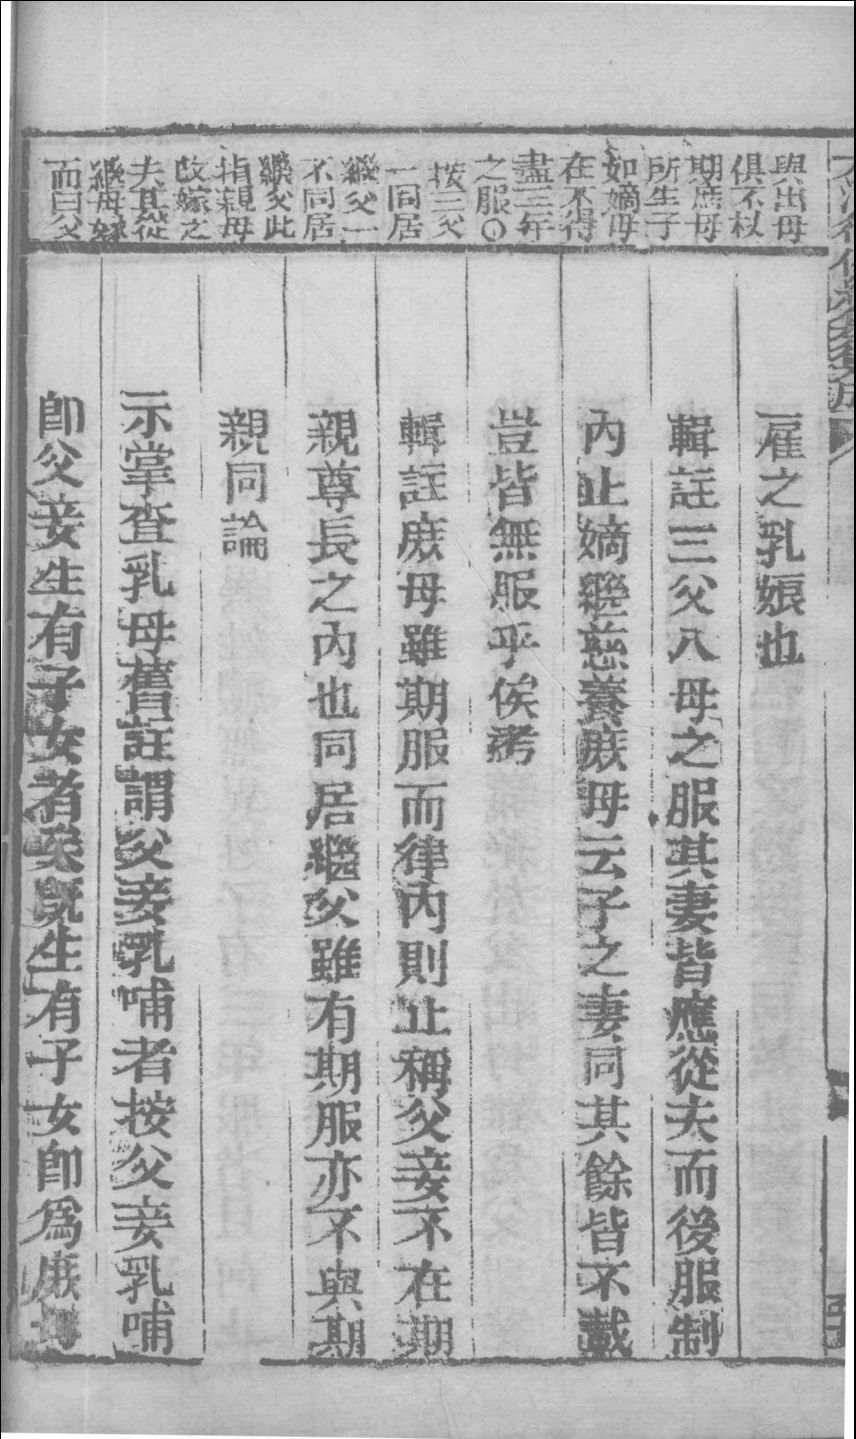 與出母
俱不杖
期庶母
所生子
如嫡母
在不得
盡三年
之服〇
按三父
一同居
繼父一
不同居
繼父此
指親母
改嫁之
夫其從
繼母嫁
而曰父
雇之乳娘也
輯註三父八母之服其妻皆應從夫而後服制
內止嫡繼慈養庶母云子之妻同其餘皆不載
豈皆無服乎俟考
輯註庶母雖期服而律內則止稱父妾不在期
親尊長之內也同居繼父雖有期服亦不與期
親同論
示掌查乳母舊註謂父妾乳哺者按父妾乳哺
即父妾生有子女者矣既生有子女即為庶母